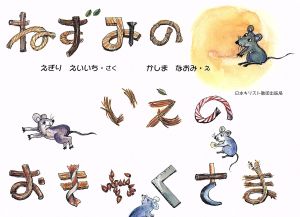 ねずみの
えぎり えいいち・さく かしま なおみ・え
日本キリスト教団出版局
イエスの
おきゃくさま